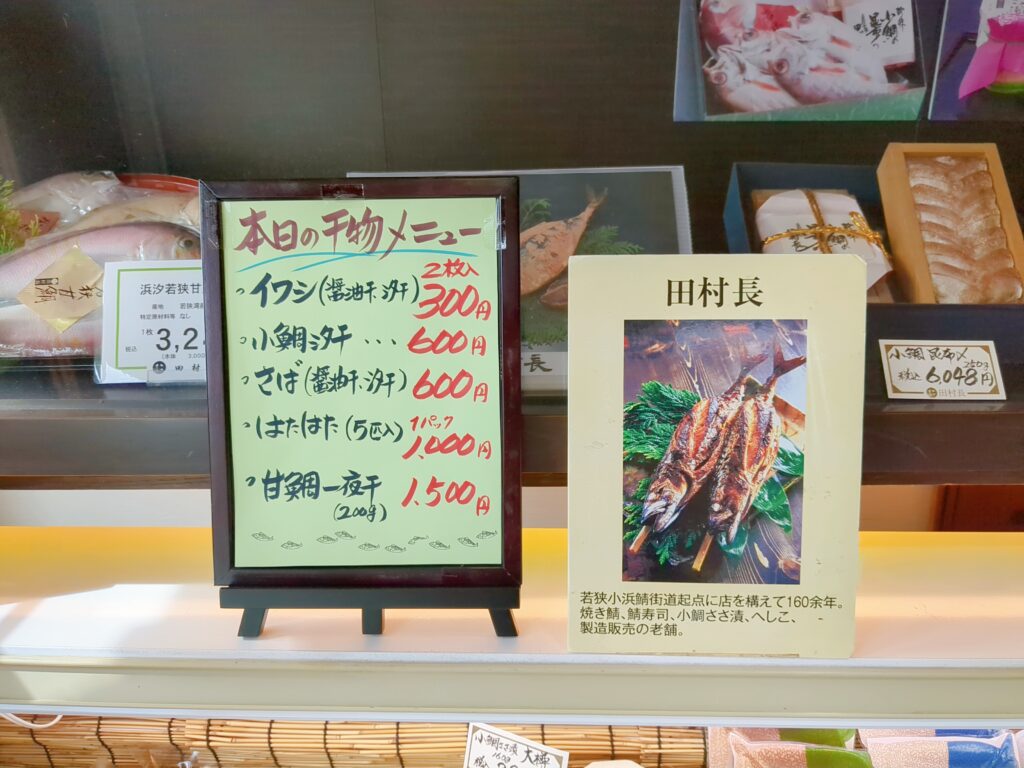 本日の干物メニュー
イワシ(醤油干、汐干) 2枚入 300円
小鯛汐干 ... 600円
さば(醤油干、汐干) 600円
はたはた(5匹入) 1パック 1,000円
甘鯛一夜干 1,500円
(200g)
田村長
若狭小浜鯖街道起点に店を構えて160余年。
焼き鯖、鯖寿司、小鯛ささ漬、へしこ、
製造販売の老舗。
浜汐若狭甘
産地 若狭湾
特定原材料等 なし
1枚
税込 3,2
(本体 3,000
田村
長
小鯛昆布〆
250g
税込 6,048円
田村長
小鯛ささ漬 大樽
160g
税込